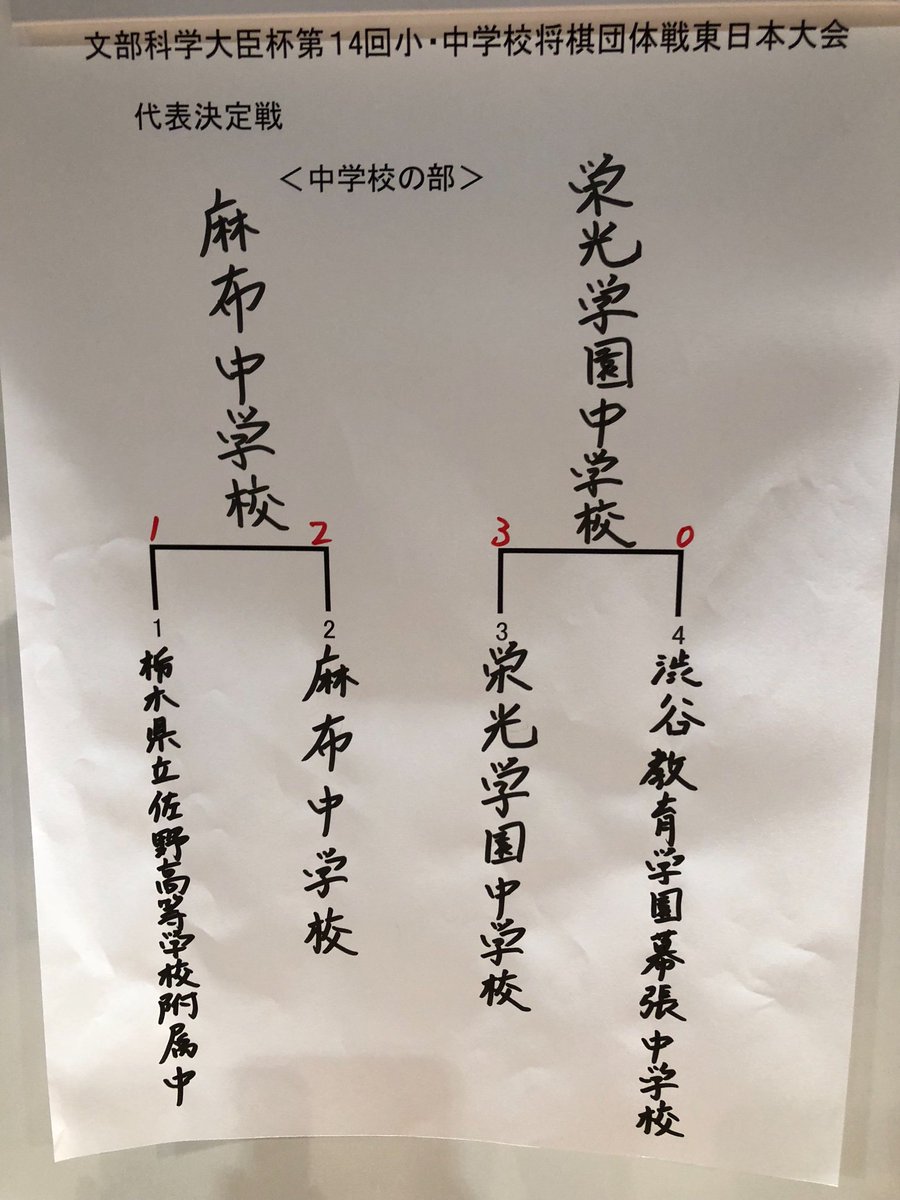 文部科学大臣杯第14回小・中学校将棋団体戦東日本大会
代表決定戦
＜中学校の部＞
麻布中学校
栄光学園中学校
1 2
3 0
1
2
3
4
栃木県立佐野高等学校附属中
麻布中学校
栄光学園中学校
渋谷教育学園幕張中学校